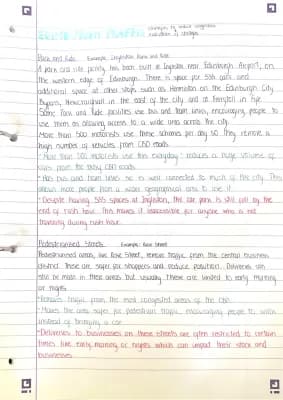 strategies to reduce congestion
evaluation of strategies
Park and Ride Example: Ingliston Park and Ride
A park and ride facility has been built at Ingliston near Edinburgh Airport, on
the western edge of Edinburgh. There is space for 535 cars and
additional space at other stops such as Hermiston on the Edinburgh City
Bypass, Newcraighall in the east of the city and at Ferrytoll in Fife.
Some Park and Ride facilities use bus and tram links, encouraging people to
use them as allowing access to a wide area across the city.
More than 500 motorists use these schemes per day so they remove a
high number of vehicles from CBD roads.
• More than 500 motorists use this everyday - reduces a huge volume of
cars from the busy CBD roads.
• Has bus and tram links so is well connected to much of the city. This
allows more people from a wider geographical area to use it.
• Despite having 535 spaces at Ingliston, the car park is still full by the
end of rush hour. This makes it inaccessible for anyone who is not
travelling during rush hour.
Pedestrianised Streets Example: Rose Street
Pedestrianised areas, like Rose Street, remove traffic from the central business
district. These are safer for shoppers and reduce pollution. Deliveries can
still be made in these areas but usually these are limited to early morning
or nights.
• Removes traffic from the most congested areas of the CBD.
• Makes the area safer for pedestrian traffic, encouraging people to walk
instead of bringing a car.
• Deliveries to businesses on these streets are often restricted to certain
times like early morning or nights which can impact their stock and
businesses.